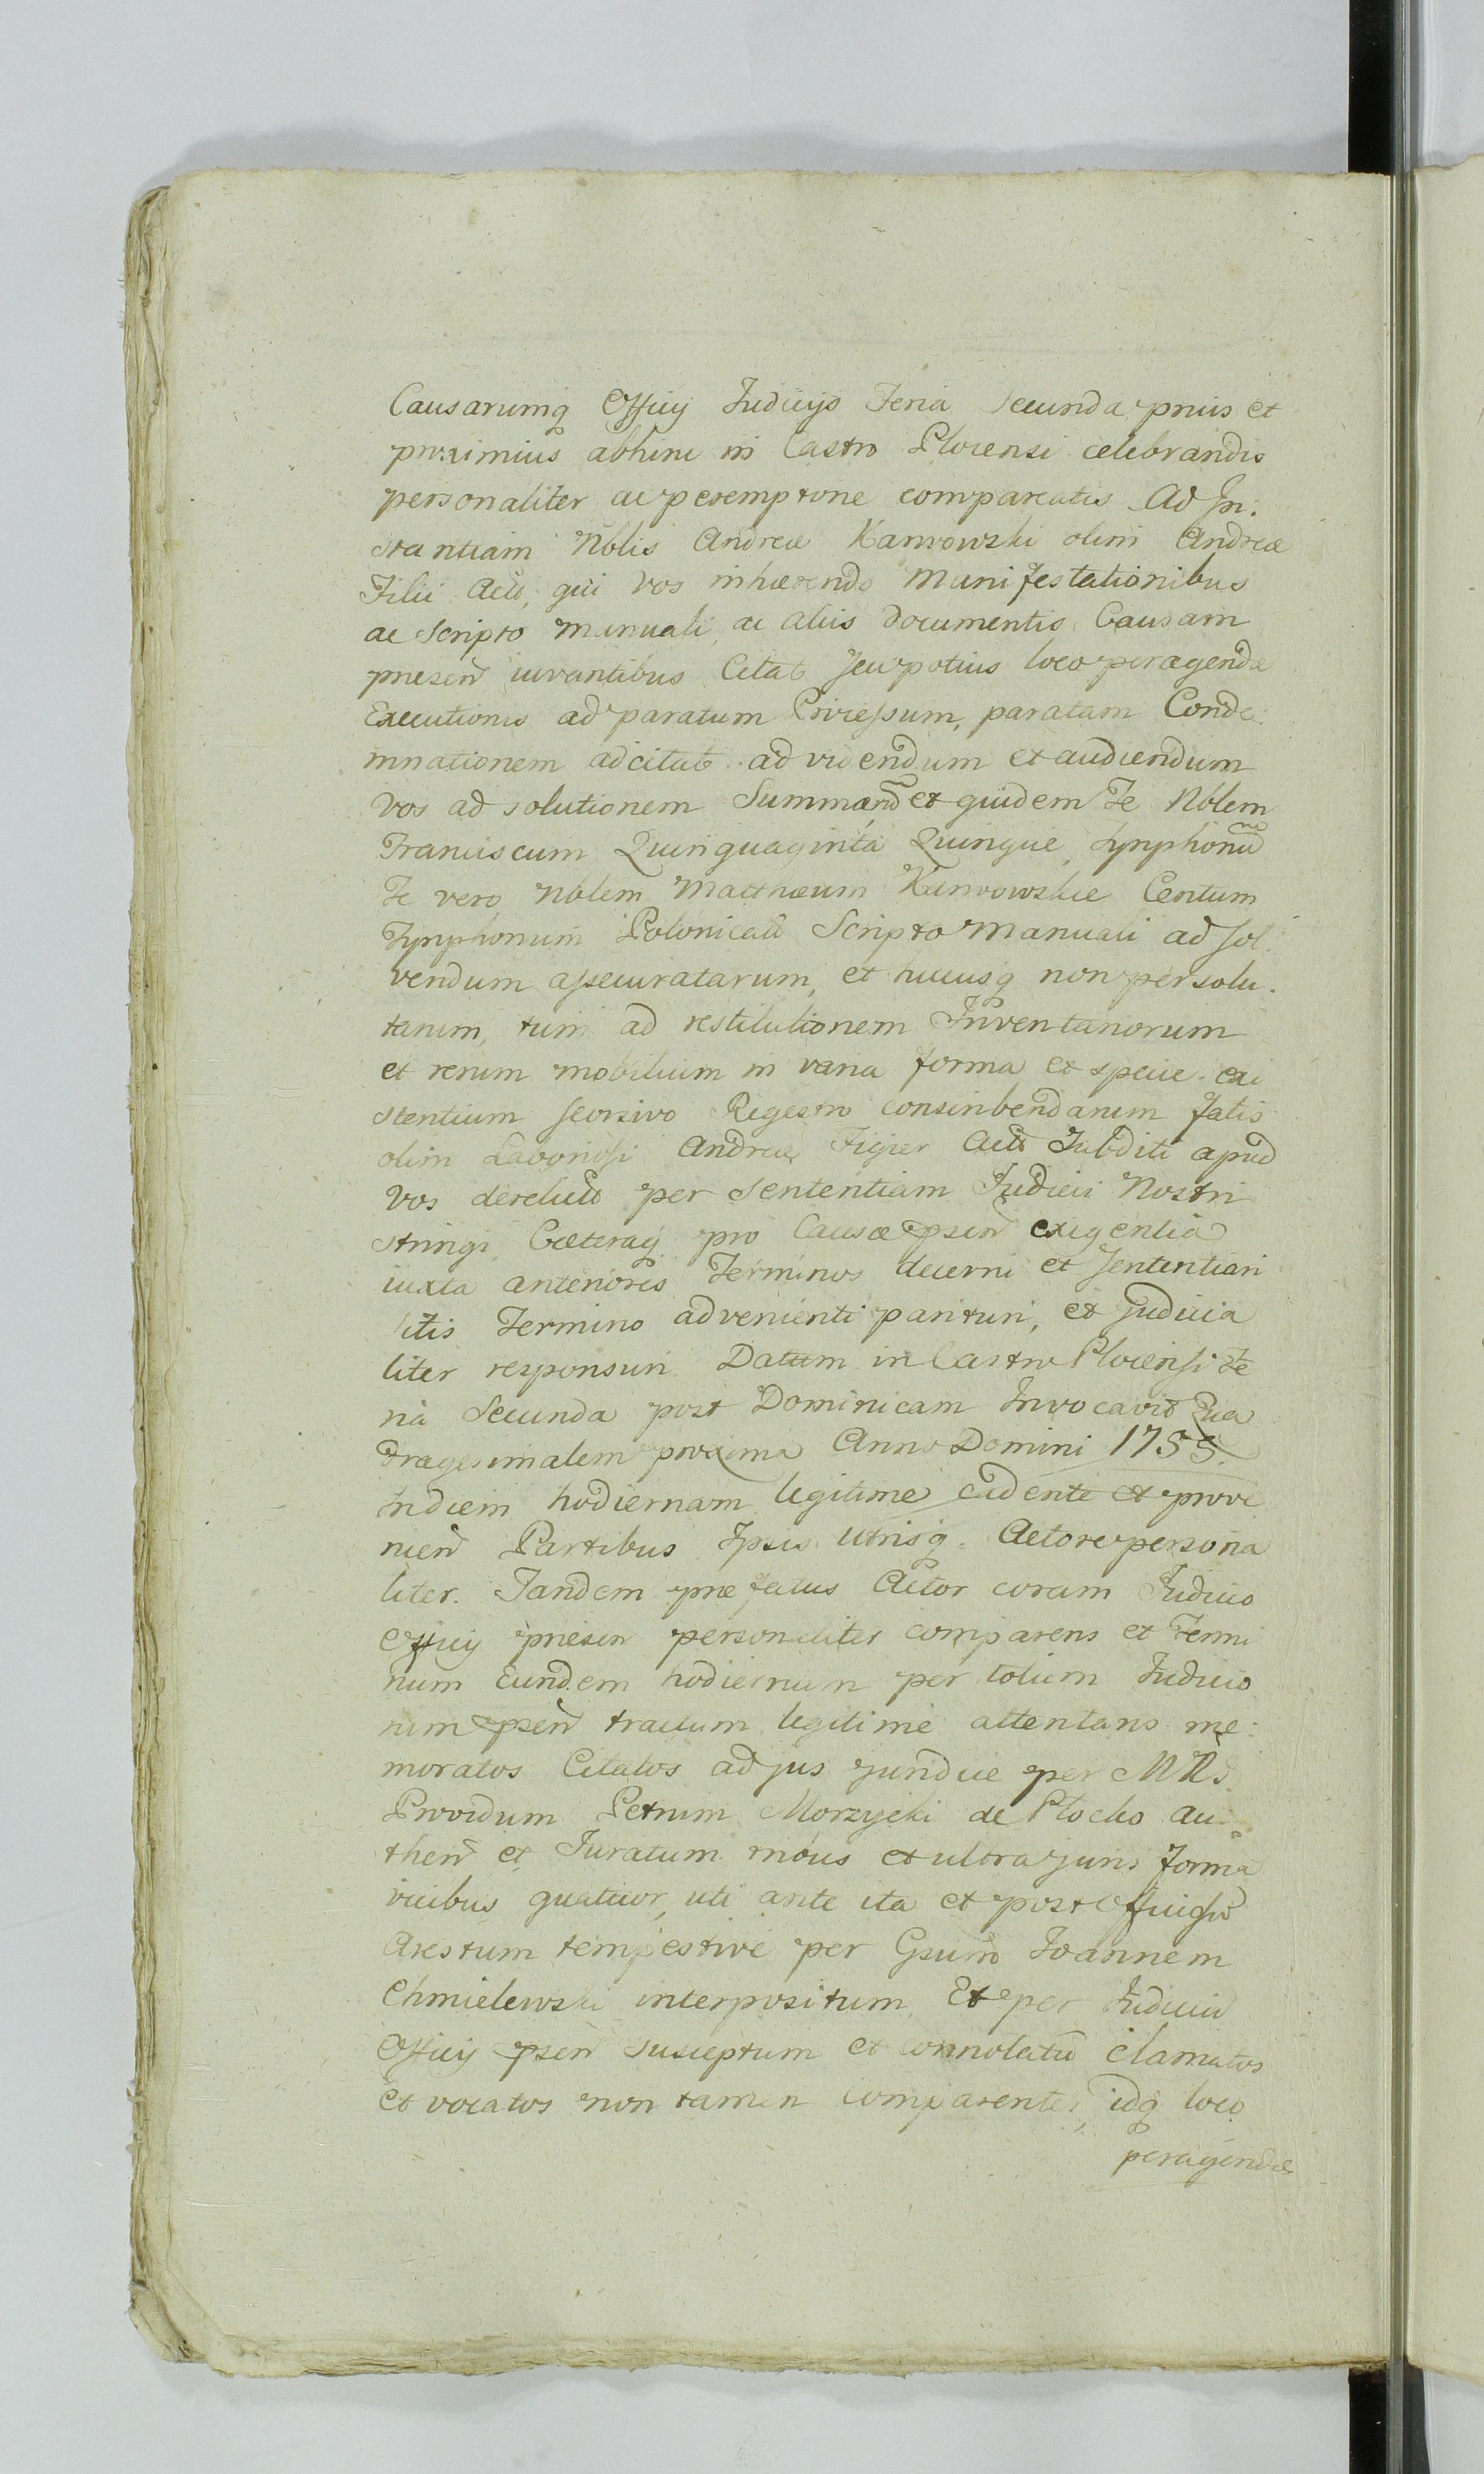 Causarumq Officij Judicijs Feria Secunda prius et
proximius abhinc in Castro Plocensi celebrandis
personaliter ac peremptorie compareatis Ad In:
stantiam Nblis Andreæ Karwowski olim Andreæ
Filii Act, qui vos inhærendo Manifestationibus
ac Scripto Manuali, ac aliis Documentis Causam
præsen iuvantibus Citat seu potius loco peragendæ
Executionis ad paratum Processum, paratam Conde:
mnationem adcitat ad videndum et audiendum
vos ad solutionem Summarū et quidem Te Nblem
Franciscum Quinquaginta Quinque Tynphonū
Te vero Nblem Matthæum Karwowskie Centum
Tynphonum Polonical Scripto Manuali ad sol:
vendum assecuratarum, et hucusq non persolu:
tarum, tum ad restitutionem Inventariorum
et rerum mobilium in varia forma et specie exi
stentium seorsivo Regestro conscribendarum fatis
olim Laboriosi Andreæ Figier Act Subditi apud
vos derelict per Sententiam Judicii Nostri
stringi, Cæteraq pro Causæ psen exigentia
iuxta anteriores Terminos decerni et sententiari
sitis Termino advenienti parituri, et judicia
liter responsuri Datum in Castro Plocensi Fe
ria Secunda post Dominicam Invocavit Qua
dragesimalem proxima Anno Domini 1755.
Indiem hodiernam legitime cadente et prove
nien Partibus Ipsis Utrisq. Actore persona
liter. Tandem præfatus Actor coram Judicio
Officij præsen personaliter comparens et Termi
num Eundem hodiernum per totum Judicio
rum psen tractum legitime attentans me:
moratos Citatos ad jus juridice per MRS
Providum Petrum Morzycki de Plocko au:
then et Juratum tribus et ultra juris forma
vicibus quatuor, uti ante ita et post Officiose
Arestum tempestive per Gsum Joannem
Chmielewski interpositum Et per Judiciu
Officij psen susceptum et connotatū clamatos
et vocatos non tamen comparentes, idq loco
peragendæ